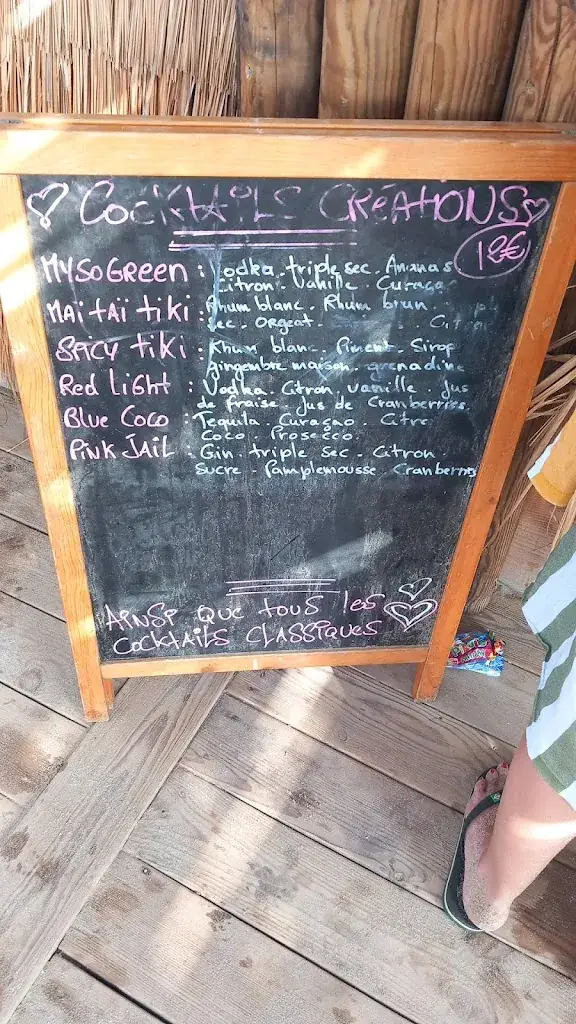 COCKTAILS CRÉATIONS
12€
MYSOGREEN : Vodka. triple sec. Ananas
Citron. Vanille. Curaçao
MAï tAï tiki : Rhum blanc. Rhum brun.
sec. Orgeat.
SPICY tiki : Rhum blanc. Piment. Sirop
gingembre maison. grenadine
Red LigHt : Vodka. Citron. vanille. jus
de fraise. Jus de Cranberries.
BLUE COCO : Tequila. Curaçao. Citre
Coco. Prosecco.
PINK JAIL : Gin. triple sec. Citron
Sucre. Pamplemousse. Cranberries
AINSI QUE tOUS les
COCKtAILS CLASSIQUES